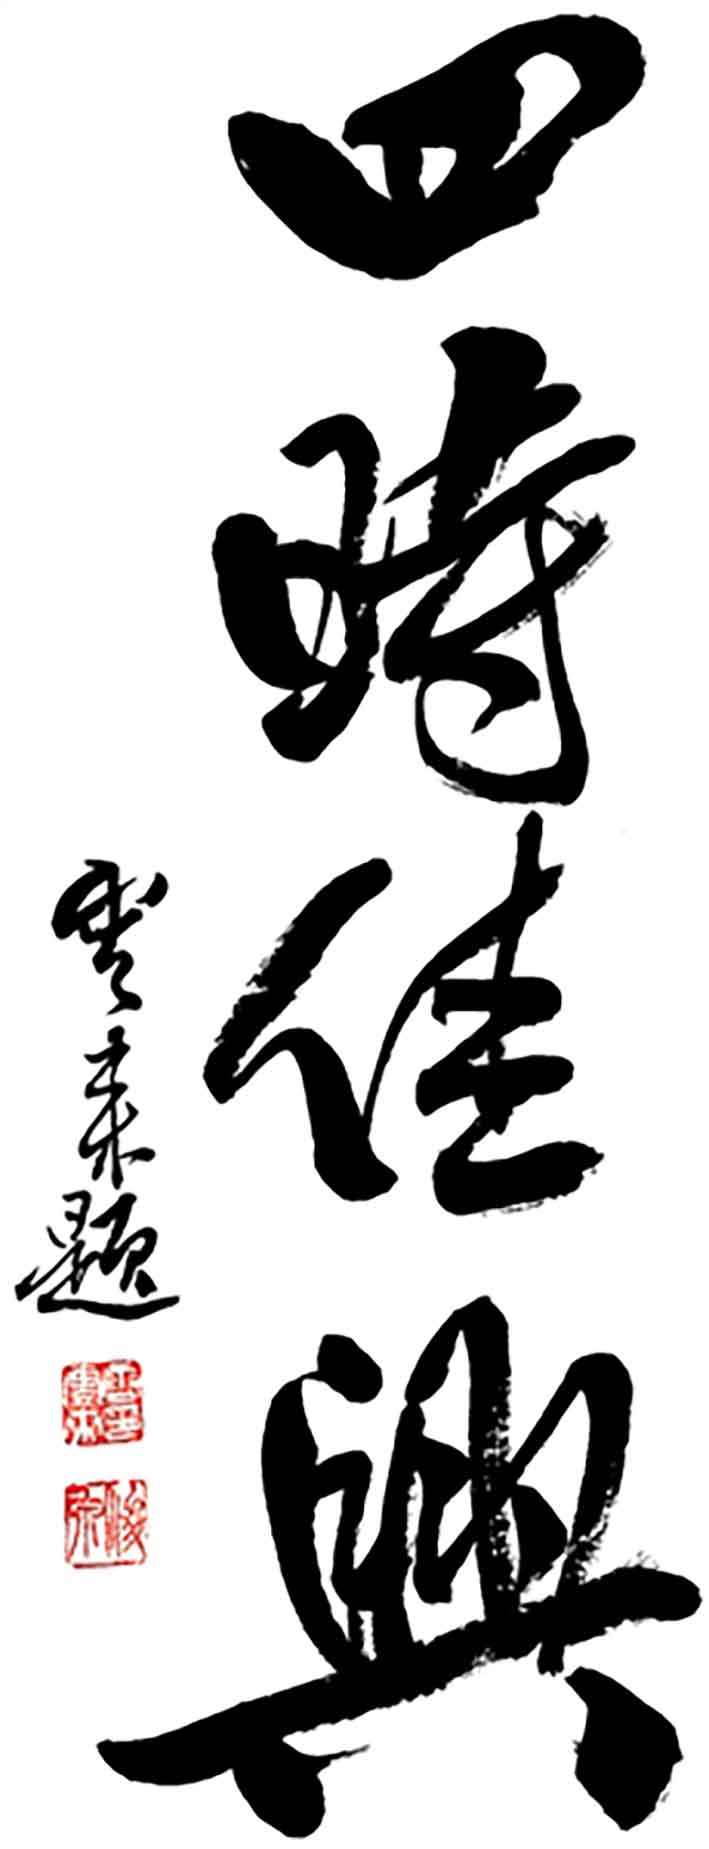 四時佳興
雲來題